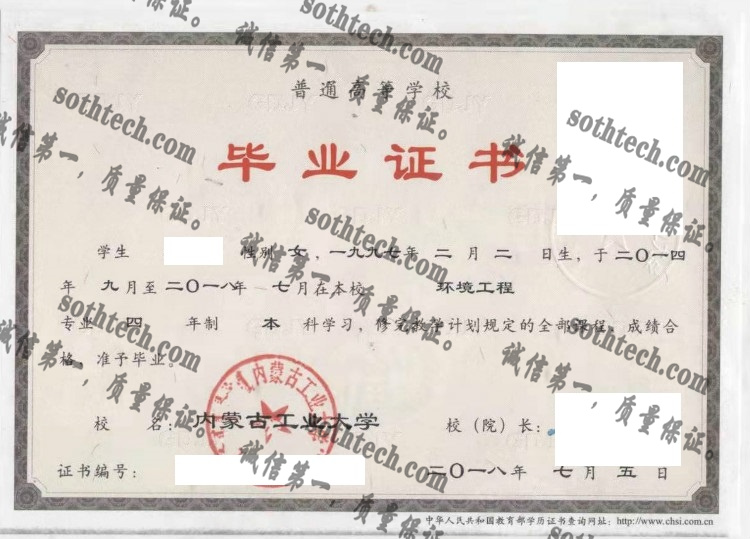 普通高等学校
毕业证书
学生 性别 女，一九九七年 二 月 二 日生，于二〇一四
年 九 月至 二〇一八年 七 月在本校 环境工程
专业 四 年制 本 科学习，修完教学计划规定的全部课程，成绩合
格，准予毕业。
校 名： 内蒙古工业大学 校（院）长：
内蒙古工业大学
证书编号： 二〇一八年 七 月 五 日
中华人民共和国教育部学历证书查询网址：http://www.chsi.com.cn
sothtech.com
诚信第一，质量保证。
sothtech.com
诚信第一，质量保证。
sothtech.com
诚信第一，质量保证。
sothtech.com
诚信第一，质量保证。
sothtech.com
诚信第一，质量保证。
sothtech.com
诚信第一，质量保证。
sothtech.com
诚信第一，质量保证。